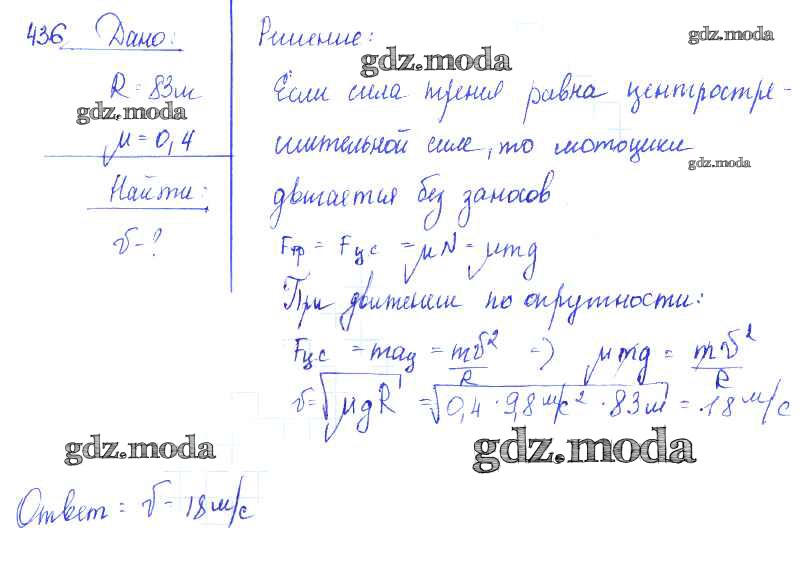 436 Дано:
R = 83м
μ = 0,4
Найти:
v - ?
Решение:
Если сила трения равна центростре-
мительной силе, то мотоцикл
двигается без заносов
Fтр = Fцс = μN = μmg
При движении по окружности:
Fцс = maц = mv²/R => μmg = mv²/R
v = √μgR = √0,4 · 9,8 м/с² · 83 м = 18 м/с
Ответ = v - 18 м/с
gdz.moda
gdz.moda
gdz.moda
gdz.moda
gdz.moda
gdz.moda